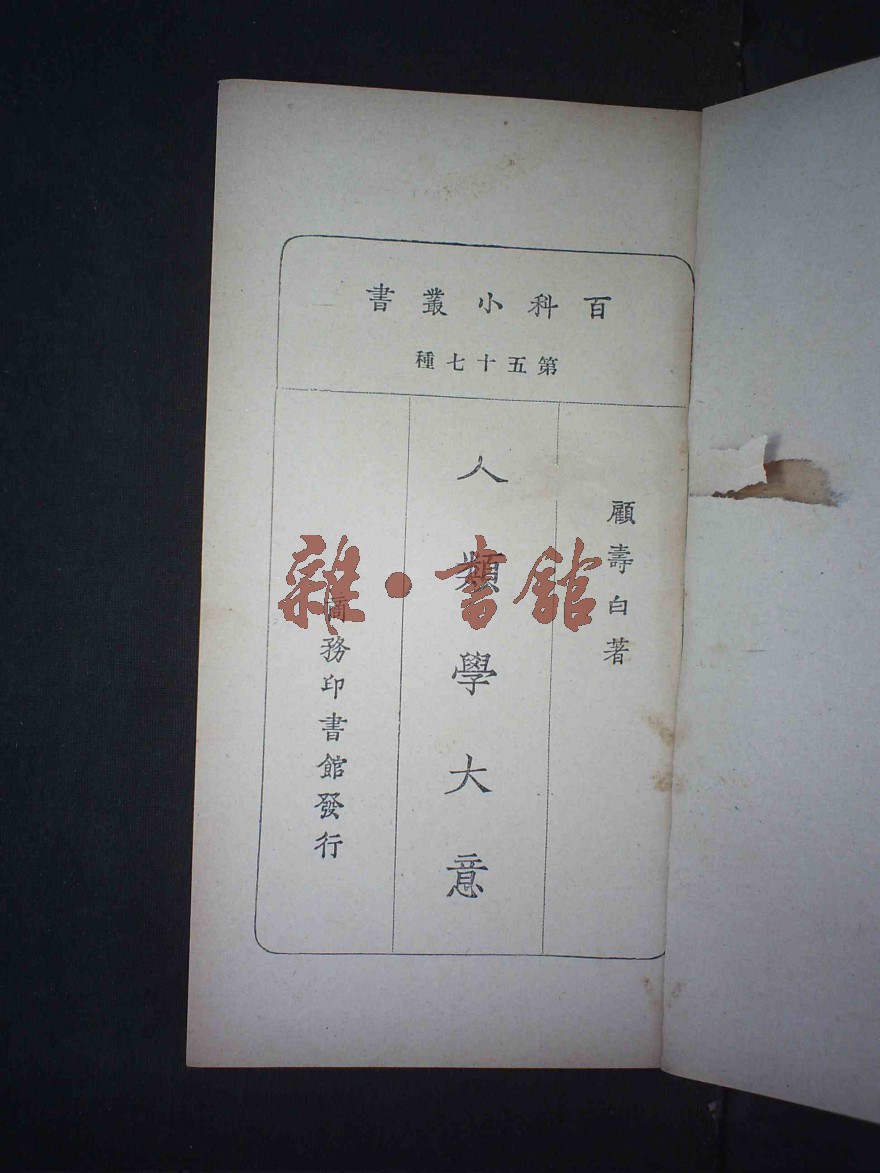 百科小叢書
第五十七種
顧壽白著
人類學大意
商務印書館發行
雜·書館